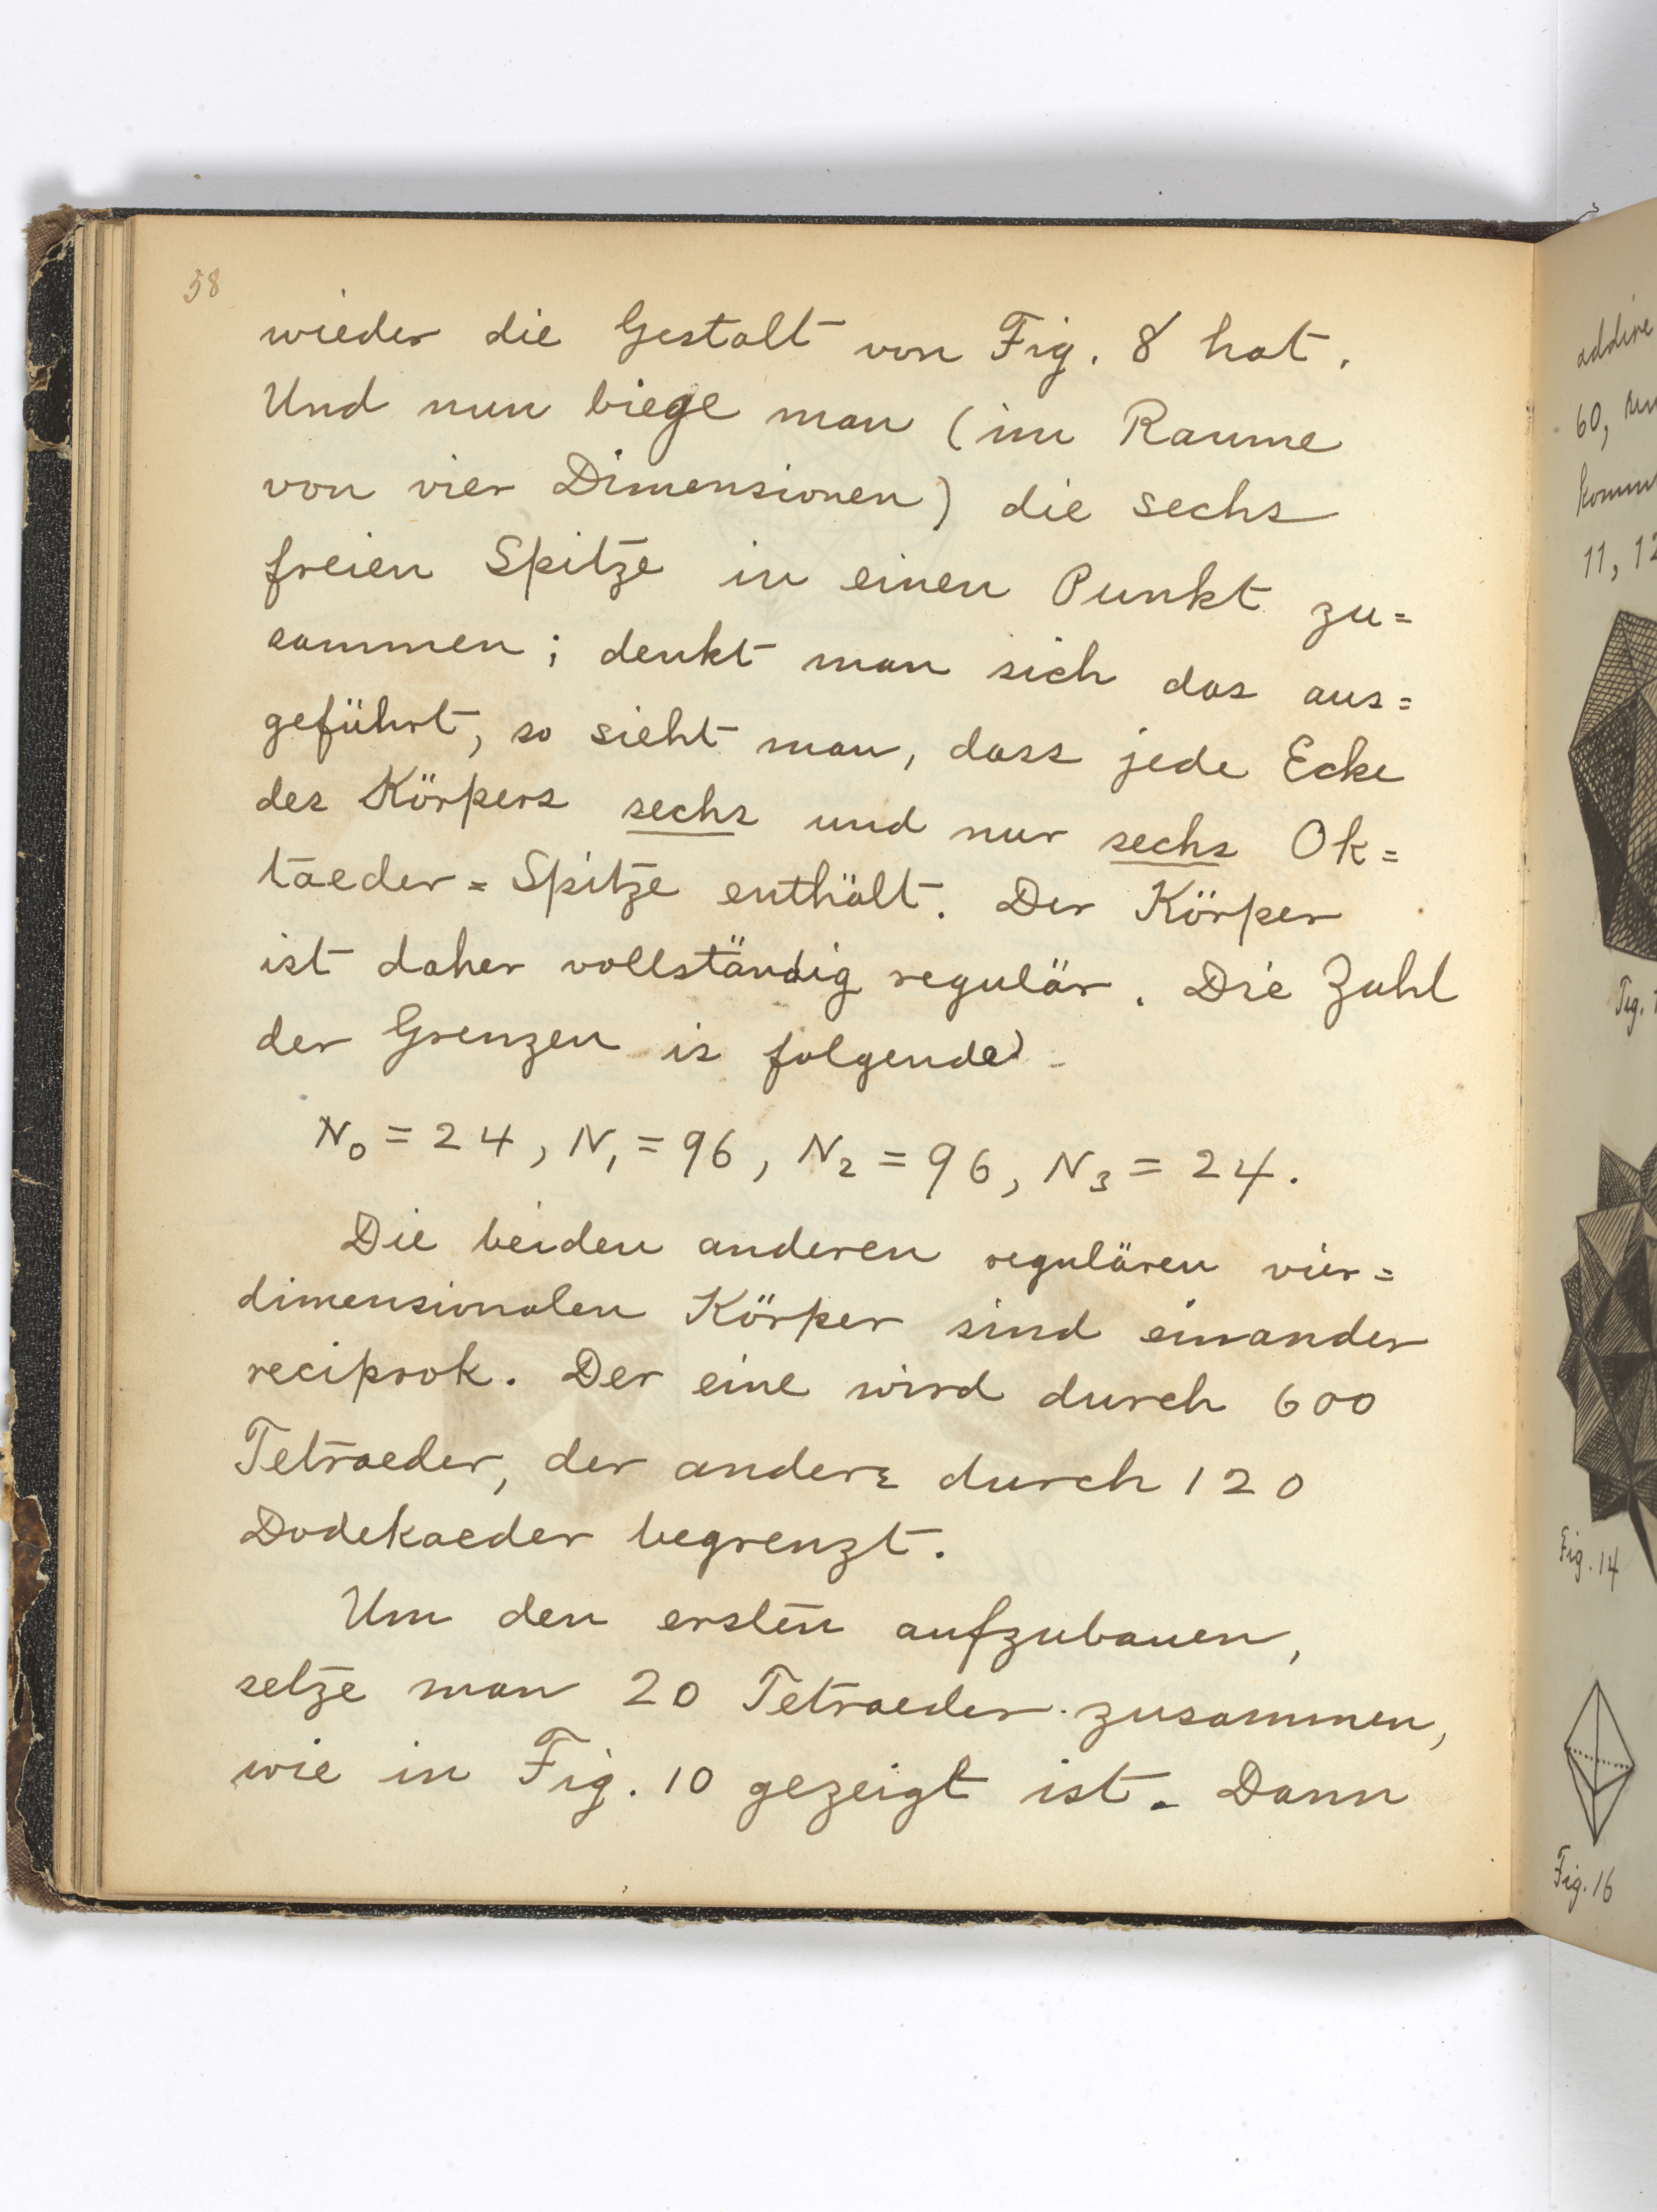 58
wieder die Gestalt von Fig. 8 hat.
Und nun biege man (im Raume
von vier Dimensionen) die sechs
freien Spitze in einen Punkt zu=
sammen; denkt man sich das aus=
geführt, so sieht man, dass jede Ecke
des Körpers sechs und nur sechs Ok=
taeder=Spitze enthält. Der Körper
ist daher vollständig regulär. Die Zahl
der Grenzen is folgende
N₀ = 24, N₁ = 96, N₂ = 96, N₃ = 24.
Die beiden anderen regulären vier=
dimensionalen Körper sind einander
reciprok. Der eine wird durch 600
Tetraeder, der andere durch 120
Dodekaeder begrenzt.
Um den ersten aufzubauen,
setze man 20 Tetraeder zusammen,
wie in Fig. 10 gezeigt ist. Dann
addire
60,
komm
11, 12
Fig. 1
Fig. 14
Fig. 16